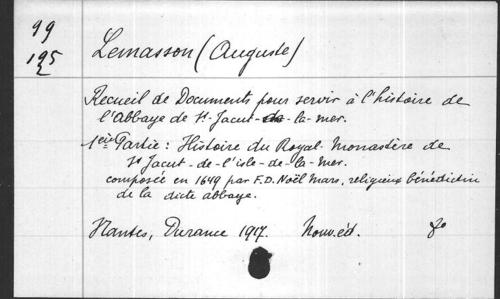 99
195
2
Lemasson (Auguste)
Recueil de Documents pour servir à l'histoire de
l'Abbaye de St-Jacut-de-la-mer.
1ère Partie : Histoire du Royal Monastère de
St Jacut-de-l'isle-de-la-Mer.
composée en 1649 par F.D. Noël Mars, religieux bénédictin
de la dicte abbaye.
Nantes, Durance 1917. Nouv. éd.